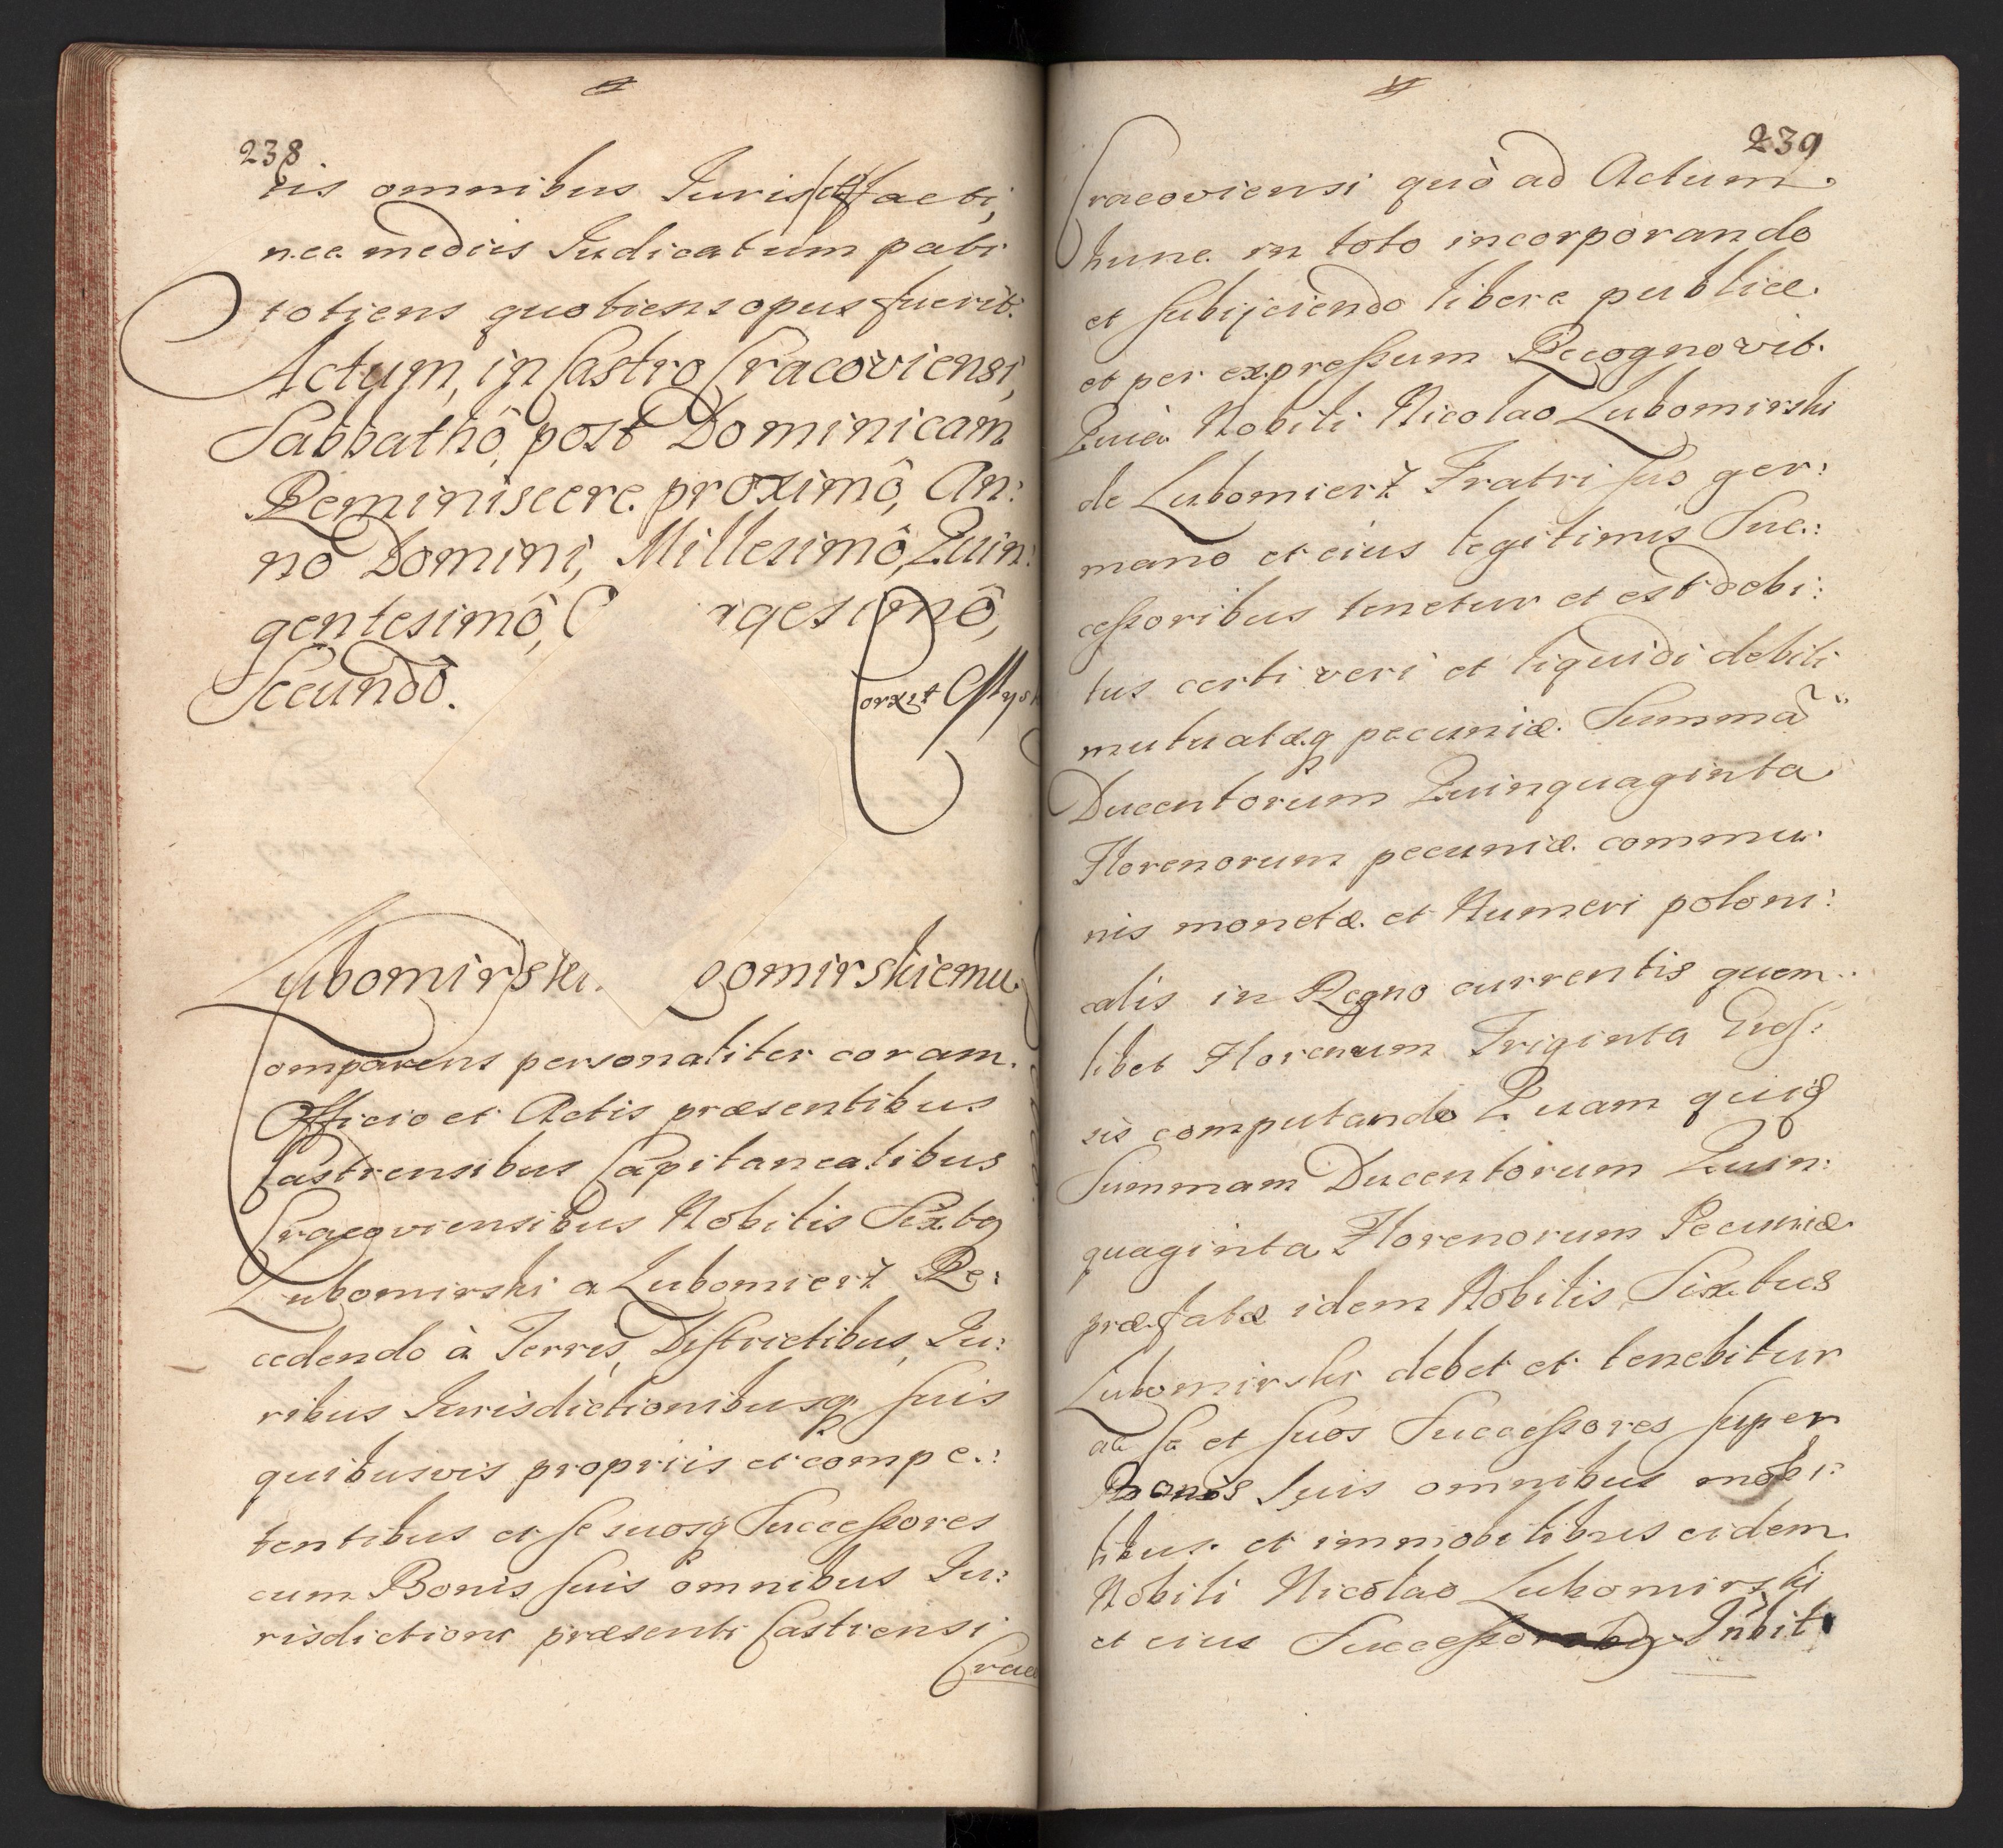 238
tis omnibus Juris et facti,
nec mediis Judicatum pati
totiens quotiens opus fuerit.
Actum, in Castro Cracoviensi,
Sabbathô, post Dominicam
Reminiscere proximô, An:
nô Domini, Millesimô, Quin:
gentesimô, gesimô,
Secundô.
Lubomirski omirskiemu
Comparens personaliter coram
Officio et Actis præsentibus
Castrensibus Capitanealibus
Cracoviensibus Nobilis Sixtq
Lubomirski a Lubomierz Re:
cedendo à Terris, Districtibus, Ju:
ribus Jurisdictionibusq suis
quibusvis propriis et compe:
tentibus et se suosq Successores
cum Bonis suis omnibus Ju:
risdictioni præsenti Castrensi
Crac
239
Cracoviensi quò ad Actum
hunc in toto incorporando
et subijciendo libere publice
et per expressum Recognovit.
Quia Nobili Nicolao Lubomirski
de Lubomierz Fratri suo ger:
mano et eius legitimis Suc:
cessoribus tenetur et est debi:
tus certi veri et liquidi debiti
mutuatæq pecuniæ Summã
Ducentorum Quinquaginta
Florenorum pecuniæ commu
nis monetæ et Numeri poloni:
calis in Regno currentis quem
libet Florenum Triginta Gros:
sis computando Quam quidẽ
Summam Ducentorum Quin:
quaginta Florenorum Pecuniæ
præfatæ idem Nobilis Sixtus
Lubomirski debet et tenebitur
ab se et suos Successores super
Bonis suis omnibus mobi:
libus et immobilibus eidem
Nobili Nicolao Lubomirski
et eius